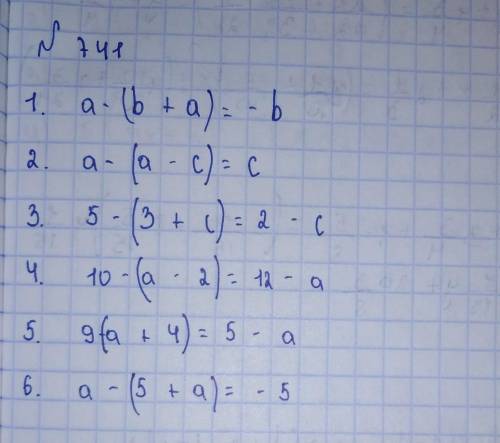 № 741
1. a - (b + a) = - b
2. a - (a - c) = c
3. 5 - (3 + c) = 2 - c
4. 10 - (a - 2) = 12 - a
5. 9-(a + 4) = 5 - a
6. a - (5 + a) = - 5